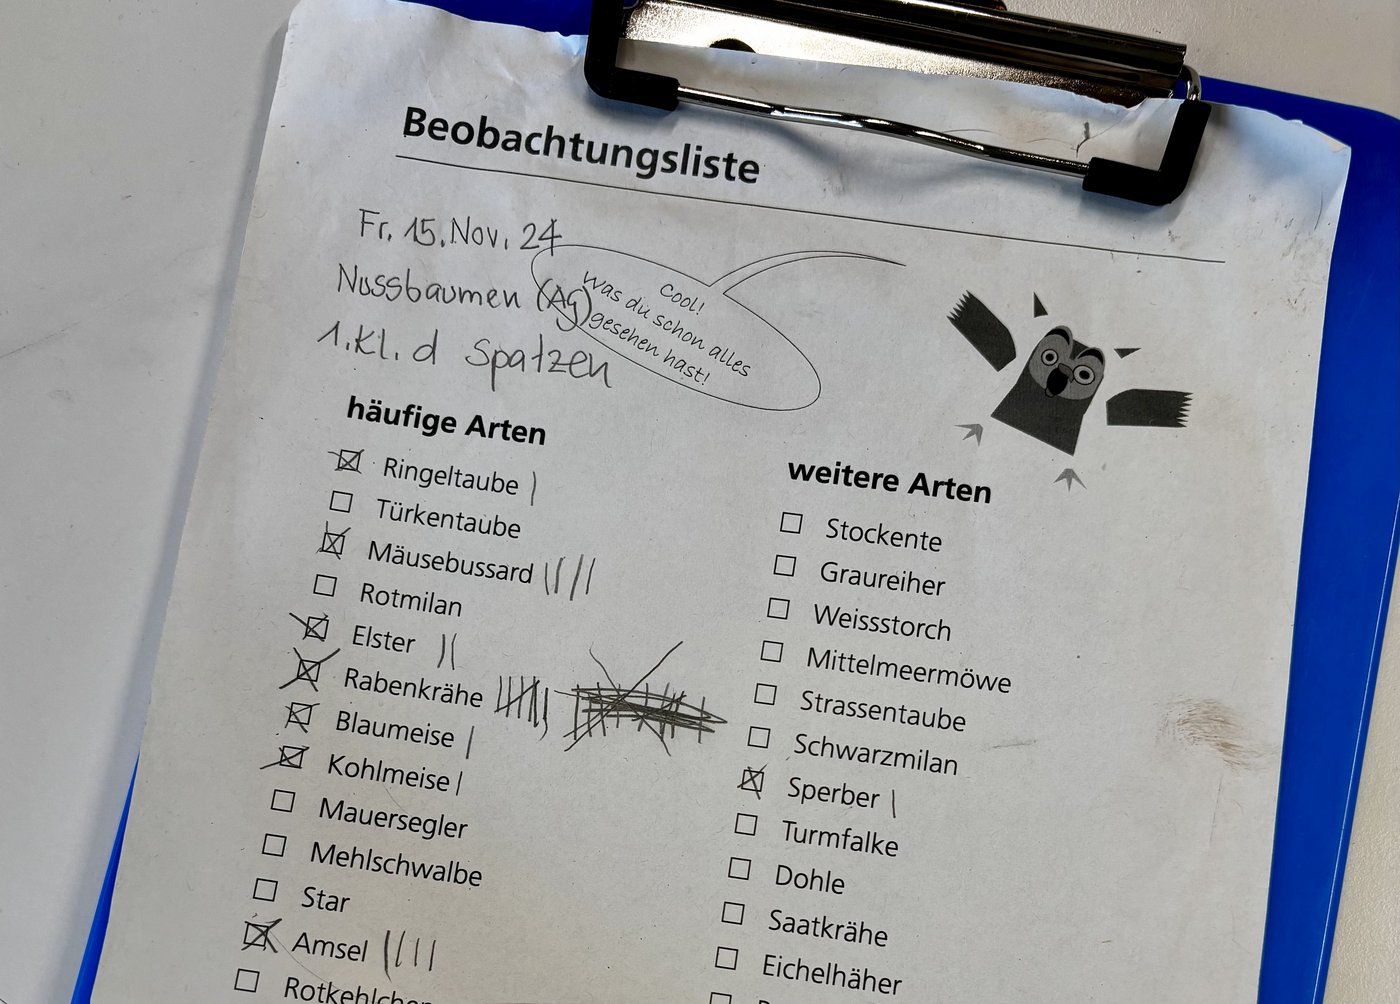 Beobachtungsliste
Fr. 15. Nov. 24
Nussbaumen (Ag)
1. Kl. d Spatzen
Cool!
Was du schon alles
gesehen hast!
häufige Arten
Ringeltaube
Türkentaube
Mäusebussard
Rotmilan
Elster
Rabenkrähe
Blaumeise
Kohlmeise
Mauersegler
Mehlschwalbe
Star
Amsel
Rotkehlchen
weitere Arten
Stockente
Graureiher
Weissstorch
Mittelmeermöwe
Strassentaube
Schwarzmilan
Sperber
Turmfalke
Dohle
Saatkrähe
Eichelhäher